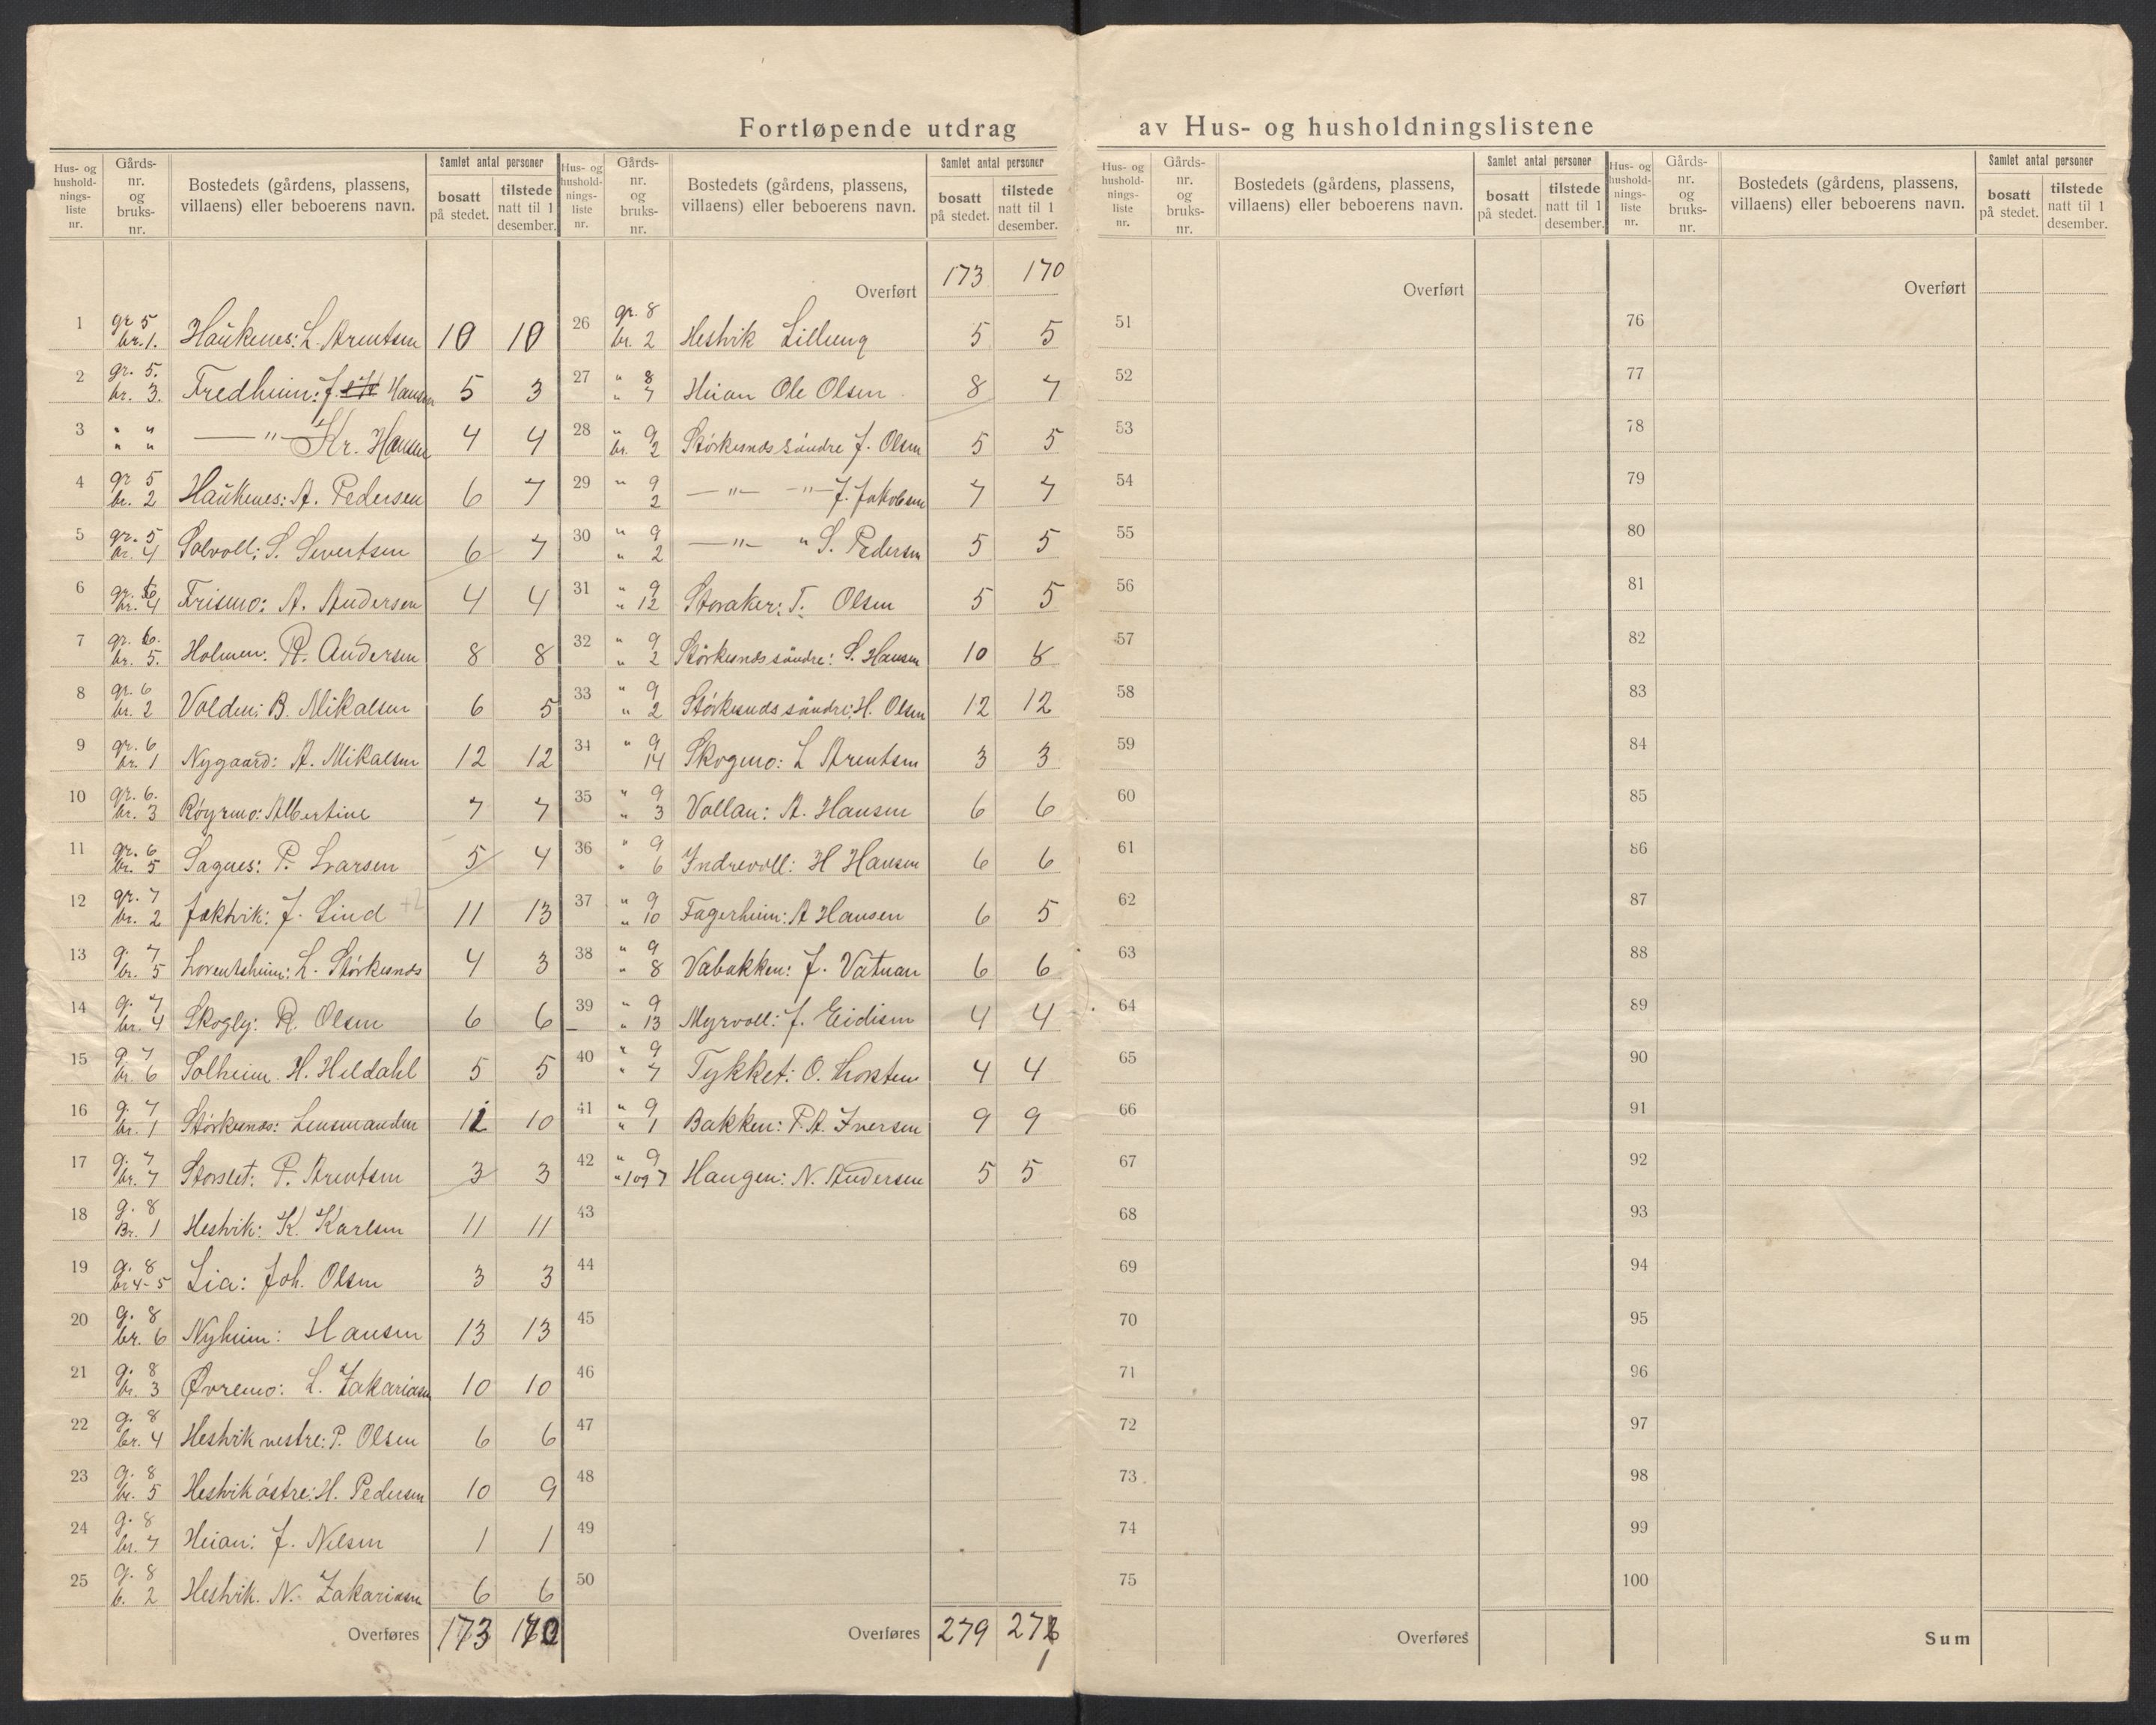 Fortløpende utdrag av Hus- og husholdningslistene
Hus- og husholdnings-liste nr. | Gårds-nr. og bruks-nr. | Bostedets (gårdens, plassens, villaens) eller beboerens navn. | Samlet antal personer | bosatt på stedet. | tilstede natt til 1 desember.
1 gr 5 br. 1. Haukenes: L. Arentsen 10 10
2 gr. 5. br. 3. Fredheim: J. Hansen 5 3
3 " " " " —"— Kr. Hansen 4 4
4 gr 5 br. 2 Haukenes: A. Pedersen 6 7
5 gr. 5 br. 4 Solvoll: S. Sivertsen 6 7
6 gr. 6 br. 4 Frismo: A. Andersen 4 4
7 gr. 6. br. 5. Holmen: R. Andersen 8 8
8 gr. 6 br. 2 Volden: B. Mikalsen 6 5
9 gr. 6 br. 1 Nygaard: A. Mikalsen 12 12
10 gr. 6. br. 3 Røyrmo: Albertine 7 7
11 gr. 6 br. 5 Sagnes: P. Larsen 5 4
12 gr. 7 br. 2 Jektvik: J. Lind +2 11 13
13 g. 7 br. 5 Lorentsheim: L. Størkesnæs 4 3
14 g. 7 br. 4 Skogly: R. Olsen 6 6
15 g. 7 br. 6 Solheim H. Hildahl 5 5
16 g. 7 br. 1 Størkesnæs: Lensmanden 10
17 g. 7 br. 7 Storslet: P. Arentsen 3 3
18 g. 8 Br. 1 Hestvik: K. Karlsen 11 11
19 g. 8 br 4-5 Lia: Joh. Olsen 3 3
20 g. 8 br. 6 Nyheim: Hansen 13 13
21 g. 8 br. 3 Øvremo: L. Zakariasen 10 10
22 g. 8 br. 4 Hestvik vestre: P. Olsen 6 6
23 g. 8 br. 5 Hestvik østre: H. Pedersen 10 9
24 g. 8 br. 7 Heian: J. Nilsen 1 1
25 g. 8 b. 2 Hestvik. N. Zakariasen 6 6
Overføres 173 170
Hus- og husholdnings-liste nr. | Gårds-nr. og bruks-nr. | Bostedets (gårdens, plassens, villaens) eller beboerens navn. | Samlet antal personer | bosatt på stedet. | tilstede natt til 1 desember.
Overført 173 170
26 gr. 8 br. 2 Hestvik Lilleeng 5 5
27 " 8 " 7 Heian Ole Olsen 8 7
28 " 9 br. 2 Størkesnæs søndre J. Olsen 5 5
29 " 9 2 —"— —"— J. Jakobsen 7 7
30 " 9 " 2 —"— " S. Pedersen 5 5
31 " 9 " 12 Storaker: T. Olsen 5 5
32 " 9 " 2 Størkesnæs søndre: S. Hansen 10 8
33 " 9 " 2 Størkesnæs søndre: H. Olsen 12 12
34 " 9 14 Skogmo: L Arentsen 3 3
35 " 9 " 3 Vollan: A. Hansen 6 6
36 " 9 " 6 Indrevoll: H Hansen 6 6
37 " 9 " 10 Fagerheim: A Hansen 6 5
38 " 9 " 8 Vabakken: J. Vatnan 6 6
39 " 9 " 13 Myrvoll: J. Eidissen 4 4
40 " 9 " 7 Tykket: O. 4 4
41 " 9 " 1 Bakken: P. A. Iversen 9 9
42 " 9 " 1 og 7 Haugen: N. Andersen 5 5
43
44
45
46
47
48
49
50
Overføres 279
1
Hus- og husholdnings-liste nr. | Gårds-nr. og bruks-nr. | Bostedets (gårdens, plassens, villaens) eller beboerens navn. | Samlet antal personer | bosatt på stedet. | tilstede natt til 1 desember.
Overført
51
52
53
54
55
56
57
58
59
60
61
62
63
64
65
66
67
68
69
70
71
72
73
74
75
Overføres
Hus- og husholdnings-liste nr. | Gårds-nr. og bruks-nr. | Bostedets (gårdens, plassens, villaens) eller beboerens navn. | Samlet antal personer | bosatt på stedet. | tilstede natt til 1 desember.
Overført
76
77
78
79
80
81
82
83
84
85
86
87
88
89
90
91
92
93
94
95
96
97
98
99
100
Sum